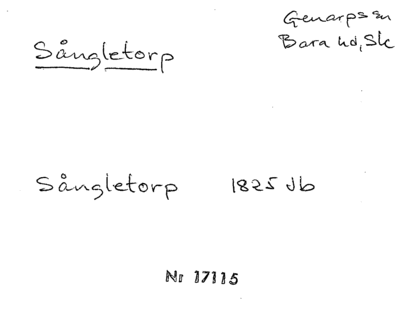 Genarps sn
Sångletorp
Bara hd, Sk
Sångletorp 1825 Jb
Nr 17115